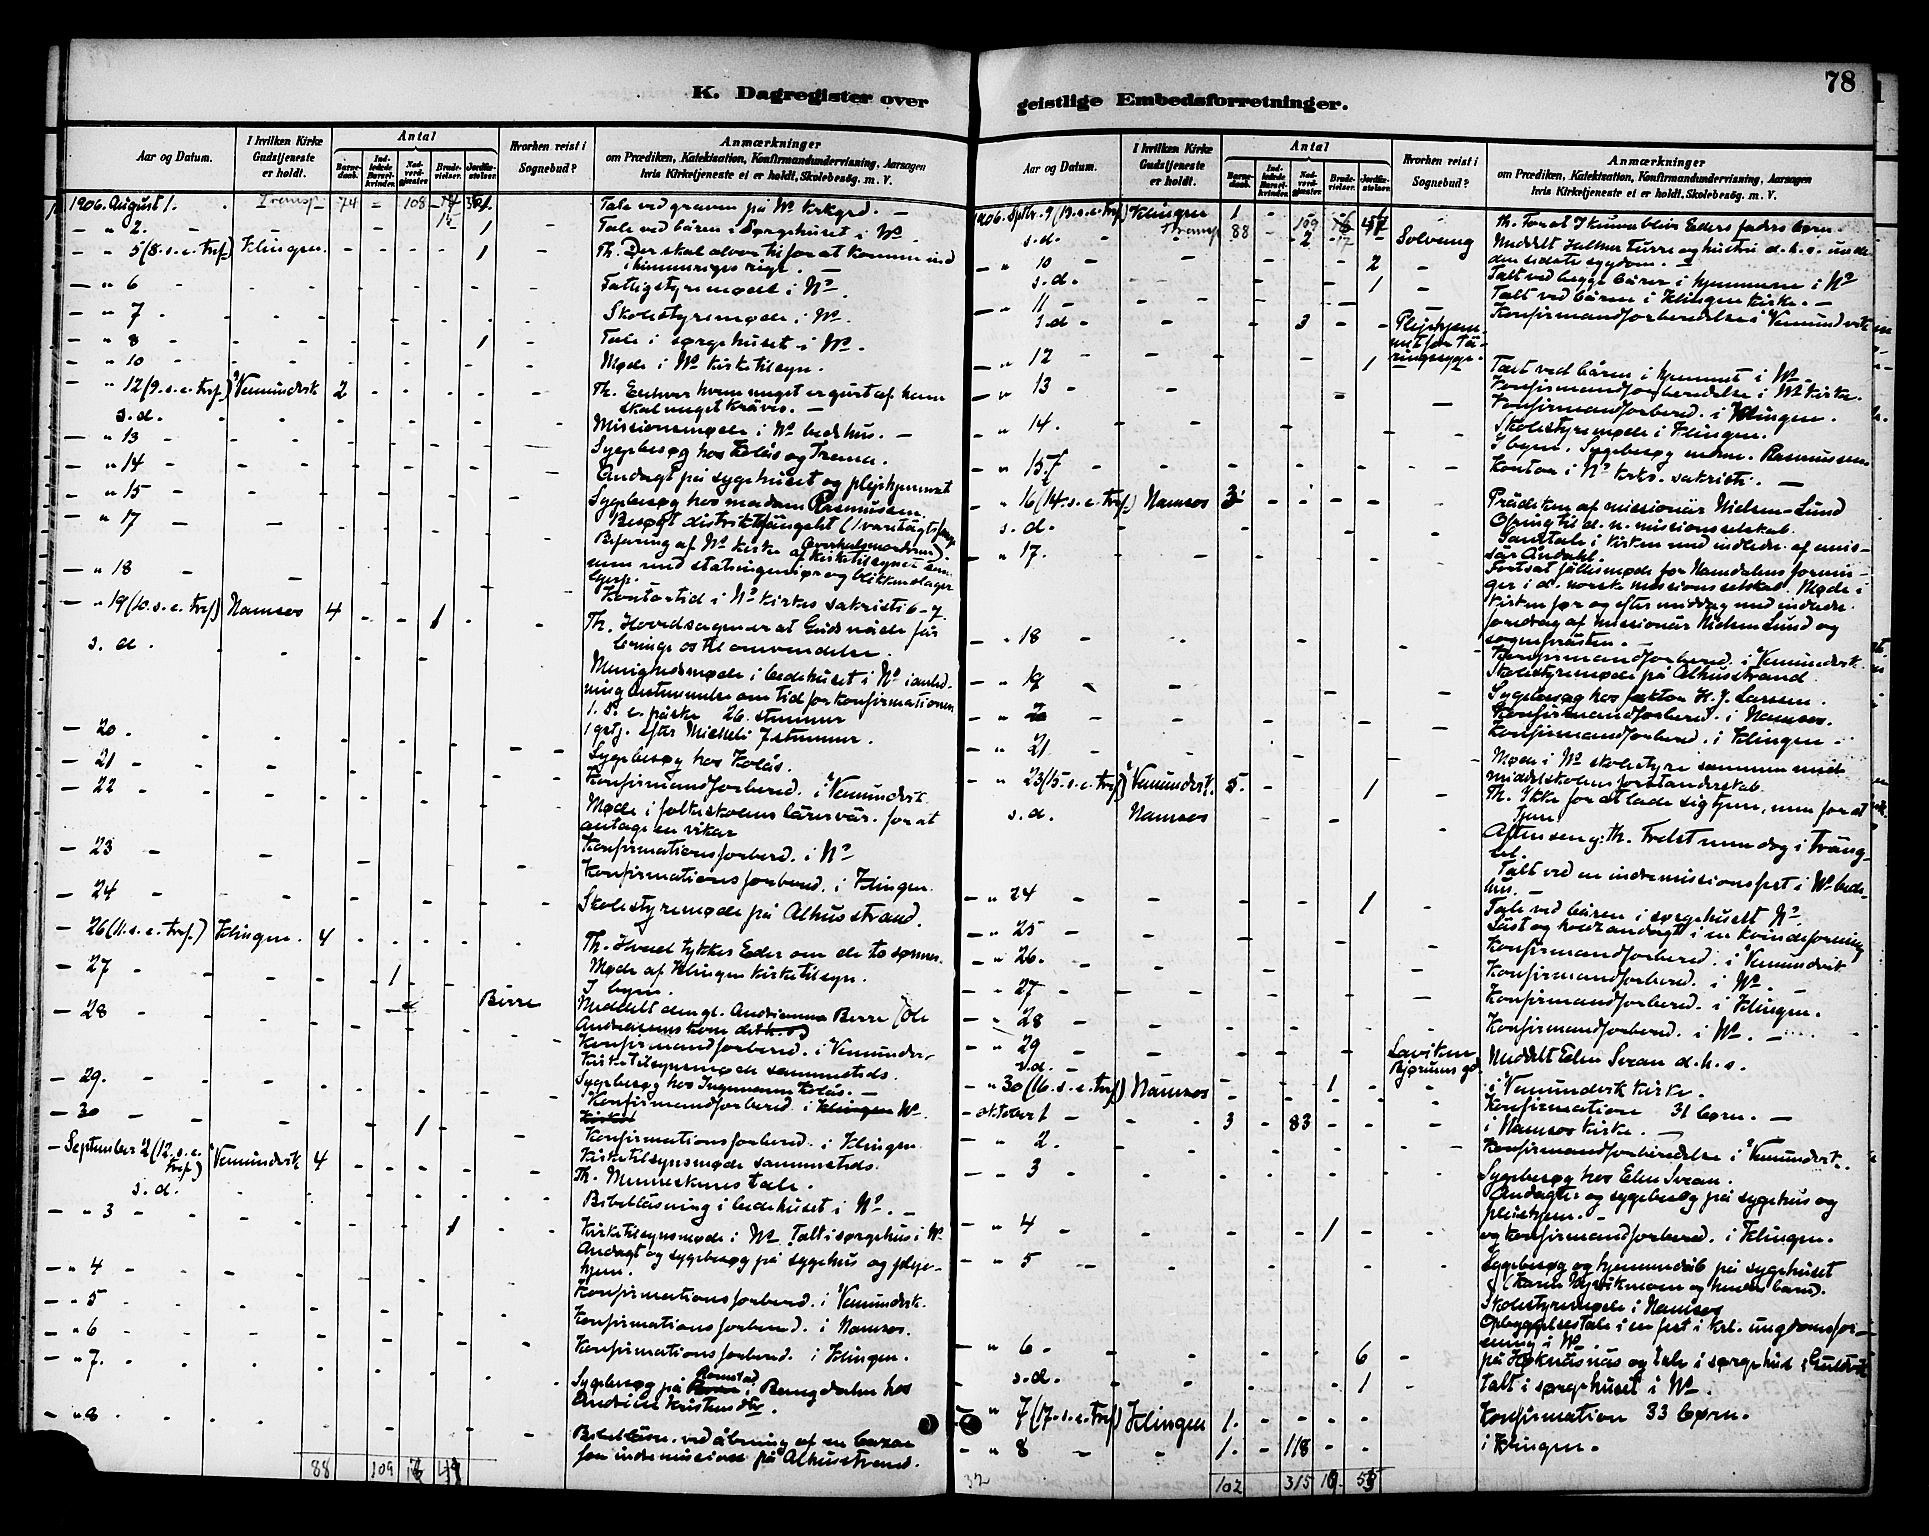 78
K. Dagregister over
Aar og Datum.
I hvilken Kirke Gudstjeneste er holdt.
Antal
Barnedaab.
Indledede Barselkvinder.
Nadverdgjester
Brudevielser.
Jordfæstelser.
Hvorhen reist i Sognebud?
Anmærkninger
om Prædiken, Katekisation, Konfirmandundervisning, Aarsagen
hvis Kirketjeneste ei er holdt, Skolebesøg. m. V.
1906. August 1. Transp 74 - 108
Tale ved graven på Ns kirkegrd. -
- " 2. 1
Tale ved båren i sørgehuset i Ns
- " 5 (8. s. e. tref.) Klingen 1
Th. Der skal alvor til for at komme ind
i himmeriges rige.
- " 6
Fattigstyremøde i Ns
- " 7
Skolestyremøde i Ns.
- " 8 1
Tale i sørgehuset i Ns.
- " 10
Møde i Ns kirketilsyn.
- " 12 (9. s. e. tref.) Vemundvik 2
Th. Enhver hvem meget er givet af ham
skal meget kræves. -
s. d.
Missionsmøde i Ns bedehus. -
- " 13
Sygebesøg hos Kolås og Trana.
- " 14
Andagt på sygehuset og plejehjemmet
- " 15
Sygebesøg hos madam Rasmussen.
- " 17
Besøgt distriktsfængslet (1 varetægtsfange
Befaring af Ns kirke af kirketilsynet sam-
men med statsingeniør og blikkenslager
- " 18
Kontortid i Ns kirkes sakristi 6-7.
- " 19 (10. s. e. tref.) Namsos 4 1
Th. Hovedsagen er at Guds nåde får
bringe os til omvendelse.
s. d.
Menighedsmøde i bedehuset i Ns i anled-
ning Avstemmelse om tid for konfirmationen
1. S. e. påske 26. stemmer
1 gstj. efter Mikkeli 7 stemmer.
- 20.
Sygebesøg hos Kolås.
- 21
Konfirmandforbered. i Vemundvik.
- 22
Møde i folkeskolens lærervær. for at
antage en vikar
- 23
Konfirmationsforbered. i Ns
- 24
Konfirmationsforbered. i Klingen.
Skolestyremøde på Alhusstrand.
- 26 (11. s. e. tref.) Klingen. 4
Th. Hvad tykkes Eder om de to sønner.
- 27 1
Møde af Klingen kirketilsyn.
I byen.
- 28 Børre
Meddelt den gl. Andrianna Børre (Ole
Andreasens kone det h. s)
Konfirmandforbered. i Vemundv.
Kirketilsynsmøde sammesteds.
- 29.
Sygebesøg hos Ingemann Kolås. -
- 30
Konfirmandforbered. i Klingen Ns.
Konfirmationsforbered. i Klingen.
Kirketilsynsmøde sammesteds.
- September 2 (12. s. e. tref.) Vemundvik 4
Th. Menneskenes tale.
s. d.
Bibellæsning i bedehuset i Ns. -
- " 3 1
Kirketilsynsmøde i Ns. Talt i sørgehus i Ns
- " 4
Andagt og sygebesøg på sygehus og pleje-
hjem.
- " 5
Konfirmationsforbered. i Vemundvik.
- " 6
Konfirmationsforbered. i Namsos.
- " 7.
Konfirmationsforbered. i Klingen.
Sygebesøg på Romstad i Bangdalen hos
- " 8
Bibellæsn. ved åbning af en bazar
for indremission på Alhusstrand.
88 109
geistlige Embedsforretninger.
Aar og Datum.
I hvilken Kirke Gudstjeneste er holdt.
Antal
Barnedaab.
Indledede Barselkvinder.
Nadverdgjester.
Brudevielser.
Jordfæstelser.
Hvorhen reist i Sognebud?
Anmærkninger
om Prædiken, Katekisation, Konfirmandundervisning, Aarsagen
hvis Kirketjeneste ei er holdt, Skolebesøg. m. V.
1906. Septbr. 9 (13. s. e. tref.) Klingen 1
Transp 88 109
Th. For at I kunne blive Eders faders børn.
s. d. 2 Solvang
Meddelt Halknes Turre og hustru d. h. s. under
den sidstes sygdom. -
- " 10 2
Talt ved begge bårer i hjemmene i Ns
s. d. 1
Talt ved båren i Klingen kirke. -
- " 11
Konfirmandforberedelse i Vemundvik
s. d. 3 Plejehjem-
met for tæ-
ringssyge.
- " 12 1
Talt ved båren i hjemmet i Ns
- " 13
Konfirmandforberedelse i Ns kirke.
Konfirmandforbered. i Klingen.
- " 14.
Skolestyremøde i Klingen.
I byen. Sygebesøg mdm. Rasmussen
- " 15.
Kontor i Ns kirkes sakristi. -
" 16 (14. s. e. tref.) Namsos 3
Prædiken af missionær Nielsen-Lund
Ofring til d. n. missionsselskab.
s. d.
Samtale i kirken med indledn. af emis-
sær Andahl.
" 17.
Fortsat fællesmøde for Namdalens forenin-
ger i d. norske missionsselskab. Møde i
kirken før og efter middag med indledn.
foredrag af missionær Nielsen Lund og
sogneprästen. -
- " 18
Konfirmandforbered. i Vemundvik.
Skolestyremøde på Alhusstrand.
- " 19
Sygebesøg hos faktor H. J. Larsen.
Konfirmandforbered. i Namsos.
Konfirmandforbered. i Klingen. -
- " 21
Møde i Ns skolestyre sammen med
middelskolens forstanderskab.
- " 23 (15. s. e. tref.) Vemundvik. 5. 1
Th. Ikke for at lade sig tjene, men for at
tjene
s. d. Namsos
Aftensang: th. Frelst men dog i træng-
sel.
Talt ved en indremissionsfest i Ns bede-
hus. -
- " 24 1
Tale ved båren i sørgehuset Ns.
- " 25
Læst og holdt andagt i en kvindeforening
- " 26.
Konfirmandforbered. i Vemundvik
- " 27
Konfirmandforbered. i Ns. -
- " 28
Konfirmandforbered. i Klingen.
- " 29
Konfirmandforbered. i Ns. -
s. d. - Laviken
Bjørums gd
Meddelt Elen Seran d. h. s.
- " 30 (16. s. e. tref.) Namsos 1
i Vemundvik kirke.
- oktober 1 3 83
Konfirmation 31 børn. -
i Namsos kirke. -
" 2.
Konfirmandforberedelse i Vemundvik.
- " 3
Sygebesøg hos Elen Seran.
Andagter og sygebesøg på sygehus og
plejehjem. -
- " 4 1
og konfirmandforbered. i Klingen.
- " 5
Sygebesøg og hjemmedåb på sygehuset
Skolestyremøde i Namsos
Opbyggelsestale i en fest i krl. ungdomsfor-
ening i Ns.
" 6. 6
på Høknæsnæs og tale i sørgehus i Guldvik
s. d. 1
Talt i sørgehuset i Ns.
- " 7 (17. s. e. tref) Klingen 1.
Konfirmation 33 børn.
- " 8 1. 118
i Klingen.
32 102 315